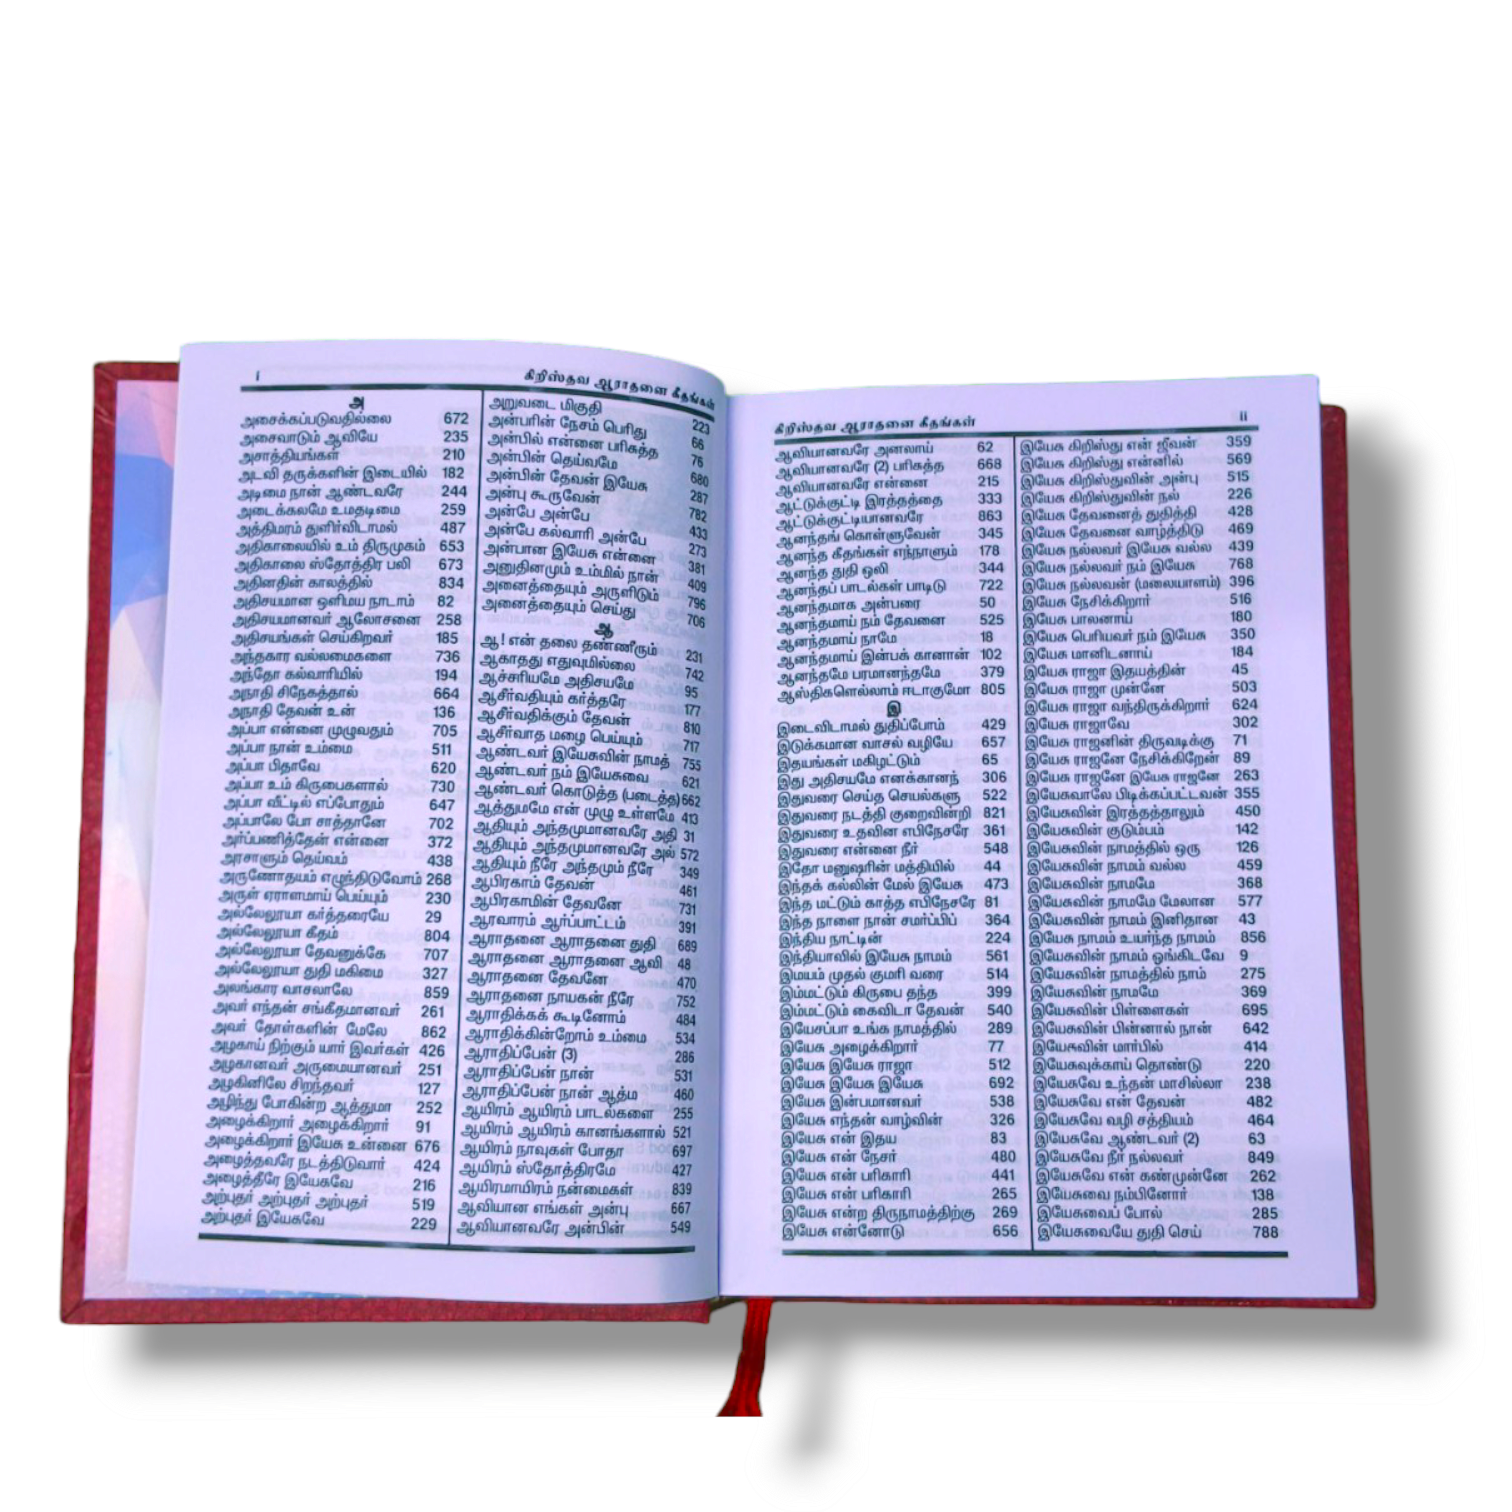 i
கிறிஸ்தவ ஆராதனை கீதங்கள்
அ
அசைக்கப்படுவதில்லை 672
அசைவாடும் ஆவியே 235
அசாத்தியங்கள் 210
அடவி தருக்களின் இடையில் 182
அடிமை நான் ஆண்டவரே 244
அடைக்கலமே உமதடிமை 259
அத்திமரம் துளிர்விடாமல் 487
அதிகாலையில் உம் திருமுகம் 653
அதிகாலை ஸ்தோத்திர பலி 673
அதினதின் காலத்தில் 834
அதிசயமான ஒளிமய நாடாம் 82
அதிசயமானவர் ஆலோசனை 258
அதிசயங்கள் செய்கிறவர் 185
அந்தகார வல்லமைகளை 736
அந்தோ கல்வாரியில் 194
அநாதி சிநேகத்தால் 664
அநாதி தேவன் உன் 136
அப்பா என்னை முழுவதும் 705
அப்பா நான் உம்மை 511
அப்பா பிதாவே 620
அப்பா உம் கிருபைகளால் 730
அப்பா வீட்டில் எப்போதும் 647
அப்பாலே போ சாத்தானே 702
அர்ப்பணித்தேன் என்னை 372
அரசாளும் தெய்வம் 438
அருணோதயம் எழுந்திடுவோம் 268
அருள் ஏராளமாய் பெய்யும் 230
அல்லேலூயா கர்த்தரையே 29
அல்லேலூயா கீதம் 804
அல்லேலூயா தேவனுக்கே 707
அல்லேலூயா துதி மகிமை 327
அலங்கார வாசலாலே 859
அவர் எந்தன் சங்கீதமானவர் 261
அவர் தோள்களின் மேலே 862
அழகாய் நிற்கும் யார் இவர்கள் 426
அழகானவர் அருமையானவர் 251
அழகினிலே சிறந்தவர் 127
அழிந்து போகின்ற ஆத்துமா 252
அழைக்கிறார் அழைக்கிறார் 91
அழைக்கிறார் இயேசு உன்னை 676
அழைத்தவரே நடத்திடுவார் 424
அழைத்தீரே இயேசுவே 216
அற்புதர் அற்புதர் அற்புதர் 519
அற்புதர் இயேசுவே 229
அறுவடை மிகுதி 223
அன்பரின் நேசம் பெரிது 66
அன்பில் என்னை பரிசுத்த 76
அன்பின் தெய்வமே 680
அன்பின் தேவன் இயேசு 287
அன்பு கூருவேன் 782
அன்பே அன்பே 433
அன்பே கல்வாரி அன்பே 273
அன்பான இயேசு என்னை 381
அனுதினமும் உம்மில் நான் 409
அனைத்தையும் அருளிடும் 796
அனைத்தையும் செய்து 706
ஆ
ஆ! என் தலை தண்ணீரும் 231
ஆகாதது எதுவுமில்லை 742
ஆச்சரியமே அதிசயமே 95
ஆசீர்வதியும் கர்த்தரே 177
ஆசீர்வதிக்கும் தேவன் 810
ஆசீர்வாத மழை பெய்யும் 717
ஆண்டவர் இயேசுவின் நாமத் 755
ஆண்டவர் நம் இயேசுவை 621
ஆண்டவர் கொடுத்த (படைத்த) 662
ஆத்துமமே என் முழு உள்ளமே 413
ஆதியும் அந்தமுமானவரே அதி 31
ஆதியும் அந்தமுமானவரே அல் 572
ஆதியும் நீரே அந்தமும் நீரே 349
ஆபிரகாம் தேவன் 461
ஆபிரகாமின் தேவனே 731
ஆரவாரம் ஆர்ப்பாட்டம் 391
ஆராதனை ஆராதனை துதி 689
ஆராதனை ஆராதனை ஆவி 48
ஆராதனை தேவனே 470
ஆராதனை நாயகன் நீரே 752
ஆராதிக்கக் கூடினோம் 484
ஆராதிக்கின்றோம் உம்மை 534
ஆராதிப்பேன் (3) 286
ஆராதிப்பேன் நான் 531
ஆராதிப்பேன் நான் ஆத்ம 460
ஆயிரம் ஆயிரம் பாடல்களை 255
ஆயிரம் ஆயிரம் கானங்களால் 521
ஆயிரம் நாவுகள் போதா 697
ஆயிரம் ஸ்தோத்திரமே 427
ஆயிரமாயிரம் நன்மைகள் 839
ஆவியான எங்கள் அன்பு 667
ஆவியானவரே அன்பின் 549
கிறிஸ்தவ ஆராதனை கீதங்கள்
ii
ஆவியானவரே அனலாய் 62
ஆவியானவரே (2) பரிசுத்த 668
ஆவியானவரே என்னை 215
ஆட்டுக்குட்டி இரத்தத்தை 333
ஆட்டுக்குட்டியானவரே 863
ஆனந்தங் கொள்ளுவேன் 345
ஆனந்த கீதங்கள் எந்நாளும் 178
ஆனந்த துதி ஒலி 344
ஆனந்தப் பாடல்கள் பாடிடு 722
ஆனந்தமாக அன்பரை 50
ஆனந்தமாய் நம் தேவனை 525
ஆனந்தமாய் நாமே 18
ஆனந்தமாய் இன்பக் கானான் 102
ஆனந்தமே பரமானந்தமே 379
ஆஸ்திகளெல்லாம் ஈடாகுமோ 805
இ
இடைவிடாமல் துதிப்போம் 429
இடுக்கமான வாசல் வழியே 657
இதயங்கள் மகிழட்டும் 65
இது அதிசயமே எனக்கானந் 306
இதுவரை செய்த செயல்களு 522
இதுவரை நடத்தி குறைவின்றி 821
இதுவரை உதவின எபிநேசரே 361
இதுவரை என்னை நீர் 548
இதோ மனுஷரின் மத்தியில் 44
இந்தக் கல்லின் மேல் இயேசு 473
இந்த மட்டும் காத்த எபிநேசரே 81
இந்த நாளை நான் சமர்ப்பிப் 364
இந்திய நாட்டின் 224
இந்தியாவில் இயேசு நாமம் 561
இமயம் முதல் குமரி வரை 514
இம்மட்டும் கிருபை தந்த 399
இம்மட்டும் கைவிடா தேவன் 540
இயேசப்பா உங்க நாமத்தில் 289
இயேசு அழைக்கிறார் 77
இயேசு இயேசு ராஜா 512
இயேசு இயேசு இயேசு 692
இயேசு இன்பமானவர் 538
இயேசு எந்தன் வாழ்வின் 326
இயேசு என் இதய 83
இயேசு என் நேசர் 480
இயேசு என் பரிகாரி 441
இயேசு என் பரிகாரி 265
இயேசு என்ற திருநாமத்திற்கு 269
இயேசு என்னோடு 656
இயேசு கிறிஸ்து என் ஜீவன் 359
இயேசு கிறிஸ்து என்னில் 569
இயேசு கிறிஸ்துவின் அன்பு 515
இயேசு கிறிஸ்துவின் நல் 226
இயேசு தேவனைத் துதித்தி 428
இயேசு தேவனை வாழ்த்திடு 469
இயேசு நல்லவர் இயேசு வல்ல 439
இயேசு நல்லவர் நம் இயேசு 768
இயேசு நல்லவன் (மலையாளம்) 396
இயேசு நேசிக்கிறார் 516
இயேசு பாலனாய் 180
இயேசு பெரியவர் நம் இயேசு 350
இயேசு மானிடனாய் 184
இயேசு ராஜா இதயத்தின் 45
இயேசு ராஜா முன்னே 503
இயேசு ராஜா வந்திருக்கிறார் 624
இயேசு ராஜாவே 302
இயேசு ராஜனின் திருவடிக்கு 71
இயேசு ராஜனே நேசிக்கிறேன் 89
இயேசு ராஜனே இயேசு ராஜனே 263
இயேசுவாலே பிடிக்கப்பட்டவன் 355
இயேசுவின் இரத்தத்தாலும் 450
இயேசுவின் குடும்பம் 142
இயேசுவின் நாமத்தில் ஒரு 126
இயேசுவின் நாமம் வல்ல 459
இயேசுவின் நாமமே 368
இயேசுவின் நாமமே மேலான 577
இயேசுவின் நாமம் இனிதான 43
இயேசு நாமம் உயர்ந்த நாமம் 856
இயேசுவின் நாமம் ஓங்கிடவே 9
இயேசுவின் நாமத்தில் நாம் 275
இயேசுவின் நாமமே 369
இயேசுவின் பிள்ளைகள் 695
இயேசுவின் பின்னால் நான் 642
இயேசுவின் மார்பில் 414
இயேசுவுக்காய் தொண்டு 220
இயேசுவே உந்தன் மாசில்லா 238
இயேசுவே என் தேவன் 482
இயேசுவே வழி சத்தியம் 464
இயேசுவே ஆண்டவர் (2) 63
இயேசுவே நீர் நல்லவர் 849
இயேசுவே என் கண்முன்னே 262
இயேசுவை நம்பினோர் 138
இயேசுவைப் போல் 285
இயேசுவையே துதி செய் 788